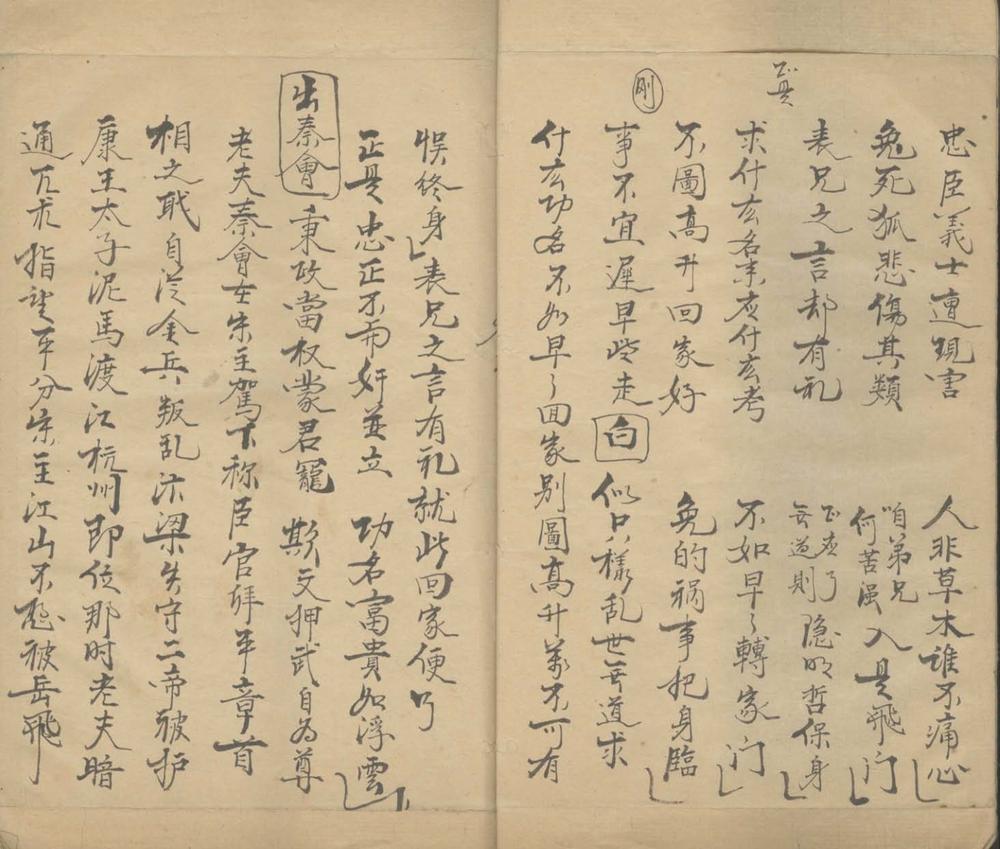 忠臣義士遭現害 人非草木谁不痛心
兔死狐悲傷其類 咱弟兄何苦强入是飛门
真
表兄之言却有礼 正应了無道則隐明哲保身
求什么名来应什么考 不如早々轉家门
不圖高升回家好 免的禍事把身臨
剛
事不宜遲早些走 白 似只樣乱世無道求
什么功名不如早々回家别圖高升萬不可有
悮终身 表兄之言有礼就此回家便了
正是忠正不而奸並立 功名富貴如浮雲
出秦會 秉政當权蒙君寵 斯文押武自为尊
老夫秦會在宋主駕下称臣官拜平章首
相之职自从金兵叛乱汴梁失守二帝被掳
康王太子泥馬渡江杭州即位那时老夫暗
通兀朮指望平分宋主江山不想被岳飛